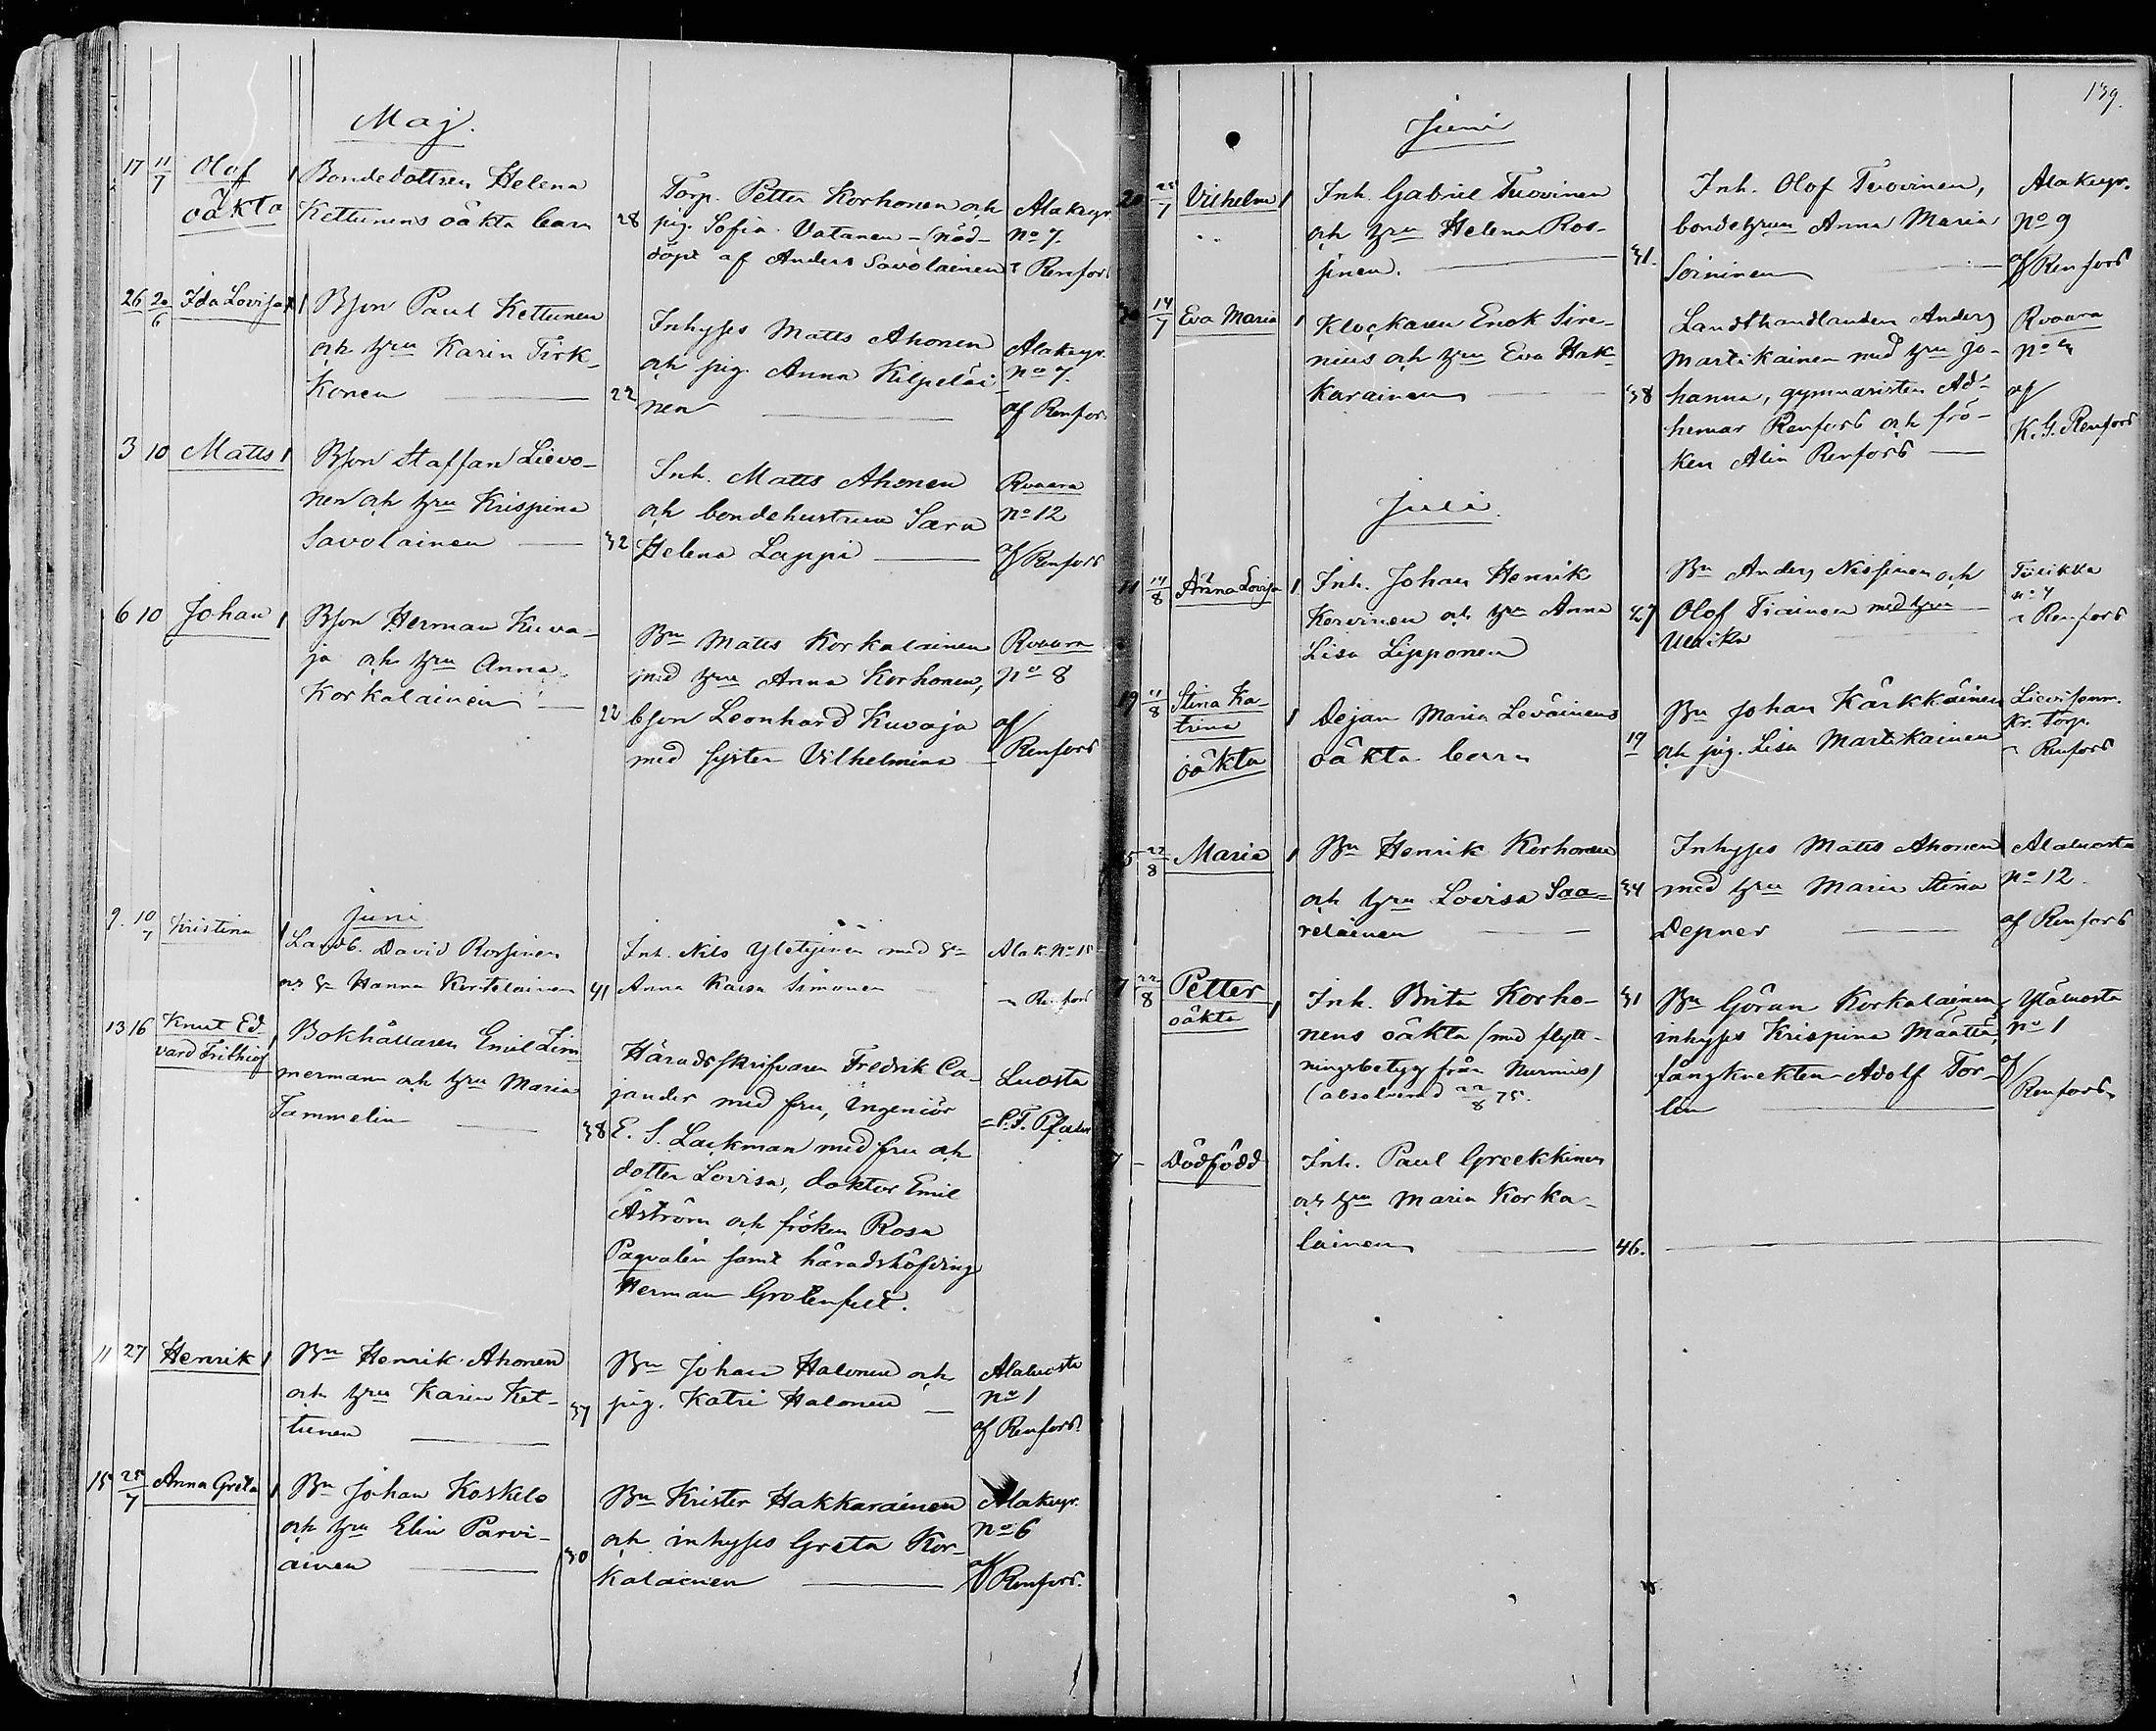 Maj.
17 11/7 Olof oäkta 1 Bondedottren Helena
Kettunens oäkta barn 28
Torp. Petter Korhonen och
pig. Sofia Vatanen - (nöd-
döpt af Anders Savolainen
Alakyr.
No 7.
Renfors
26 20/6 Ida Lovisa 1 Bson Paul Kettunen
och hru Karin Tirk-
konen 22
Inhyses Matts Ahonen
och pig. Anna Kilpeläi
nen
Alakyr.
No 7.
af Renfors
3 10 Matts 1 Bson Staffan Lievo-
nen och hru Krispina
Savolainen 32
Inh. Matts Ahonen
och bondehustrun Sara
Helena Lappi
Rvaara
No 12
af Renfors
6 10 Johan 1 Bson Herman Kuva-
ja och hru Anna
Korkalainen 22
Bn Matts Korkalainen
med hru Anna Korhonen,
bson Leonhard Kuvaja
med syster Vilhelmina
Rvaara
No 8
af
Renfors
Juni
9. 10/7 Kristina 1 Landb. David Rossinen
och h. Hanna Kortelainen 41
Inh. Nils Yletyinen med h.
Anna Kaisa Simonen
Alak. No 15
Renfors
13 16 Knut Ed-
vard Frithiof 1 Bokhållaren Emil Zim
mermann och hru Maria
Tammelin 38
Häradsskrifvaren Fredrik Ca-
jander med fru, Ingeniör
E. S. Lackman med fru och
dotter Lovisa, doktor Emil
Åström och fröken Rosa
Pagvalin samt häradshöfding
Herman Grotenfelt.
Luosta
11 27 Henrik 1 Bn Henrik Ahonen
och hru Karin Ket-
tunen 37
Bn Johan Halonen och
pig. Katri Halonen
Alaluosta
No 1
af Renfors
15 25/7 Anna Greta 1 Bn Johan Koskelo
och hru Elin Parvi-
ainen 30
Bn Krister Hakkarainen
och inhyses Greta Kor-
kalainen
Alakyr.
No 6
af Renfors.
139.
Juni
20 25/7 Vilhelm 1 Inh. Gabriel Tuovinen
och hru Helena Ros-
sinen. 31.
Inh. Olof Tuovinen,
bondehrun Anna Maria
Soininen
Alakyr.
No 9
af Renfors
30 14/7 Eva Maria 1 Klockaren Enok Sire-
nius och hru Eva Hak-
karainen 38
Landthandlanden Anders
Martikainen med hru Jo-
hanna, gymnasisten Ad-
hemar Renfors och frö-
ken Alin Renfors
Rvaara
No 4
af
K. G. Renfors
Juli.
11 14/8 Anna Lovisa 1 Inh. Johan Henrik
Kervinen och hru Anna
Lisa Lipponen 27
Bn Anders Nissinen och
Olof Tiainen med hru
Ulrika
Tulikka
No 4
Renfors
19 11/8 Stina Ka-
trina
oäkta 1 Dejan Maria Leväinens
oäkta barn 19
Bn Johan Kärkkäinen
och pig. Lisa Martikainen
Kr. torp.
Renfors
5 22/8 Maria 1 Bn Henrik Korhonen
och hru Lovisa Saa-
relainen 34
Inhyses Matts Ahonen
med hru Maria Stina
Depner
Alaluosta
No 12.
af Renfors
7 22/8 Petter
oäkta 1 Inh. Brita Korho-
nens oäkta (med flytt-
ningsbetyg från Nurmis)
(absolverad 22/8 75. 31
Bn Göran Korkalainen,
inhyses Krispina Määttä,
fångknekten Adolf Tor-
lin
Yläluosta
No 1
af
Renfors
7 - Dödfödd Inh. Paul Greekkinen
och hru Maria Korka-
lainen 46.